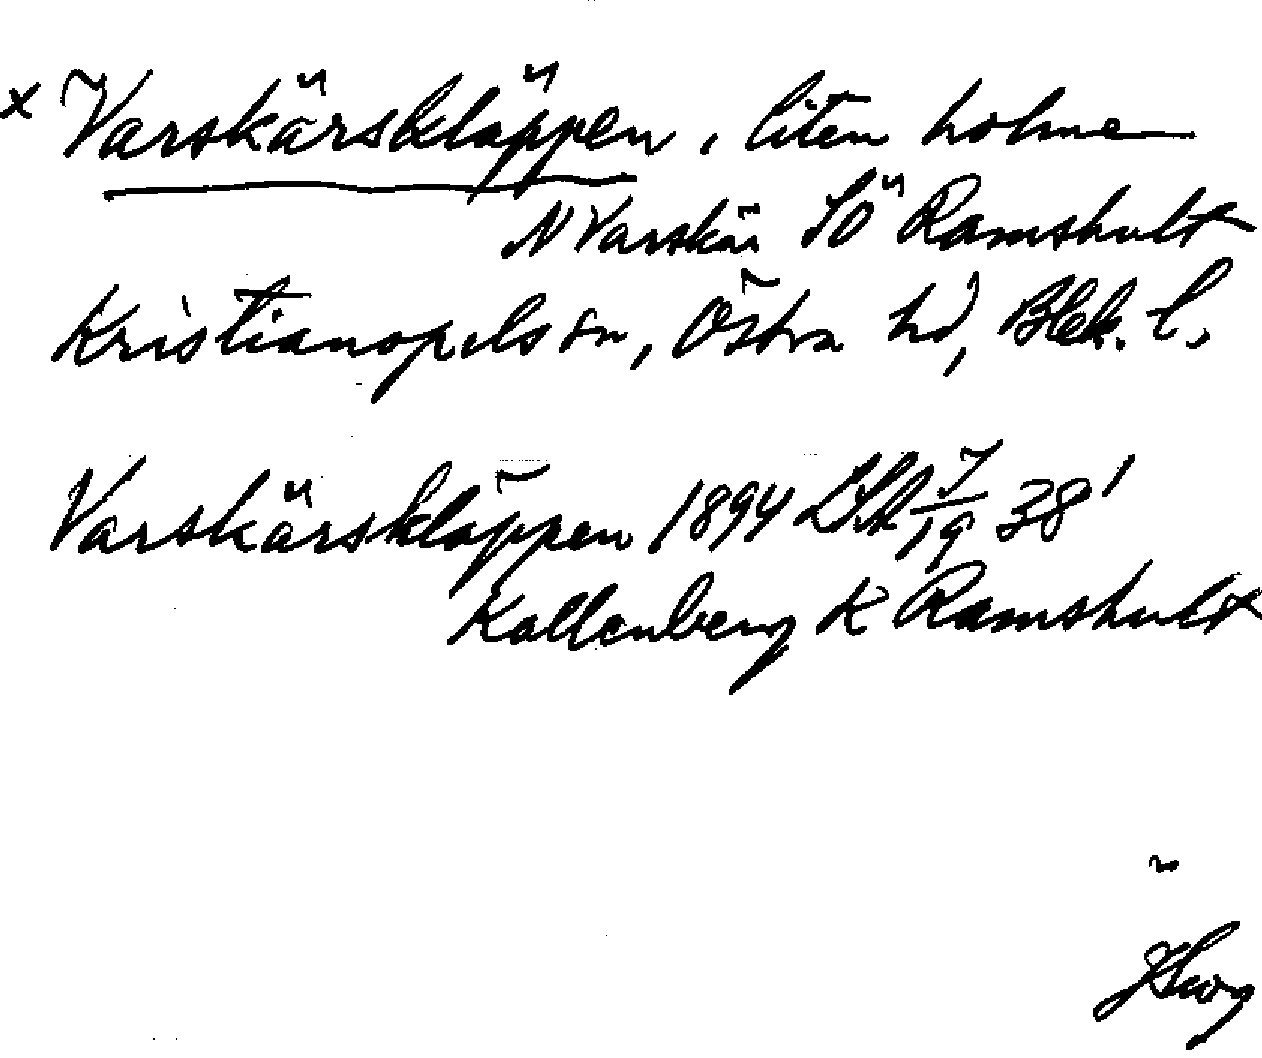 x Varskärskläppen, liten holme
N Varskär SÖ Ramshult
Kristianopels sn, Östra hd, Blek. l.
Varskärskläppen 1894 LSA 7/19 38'
Kallenberg K Ramshult